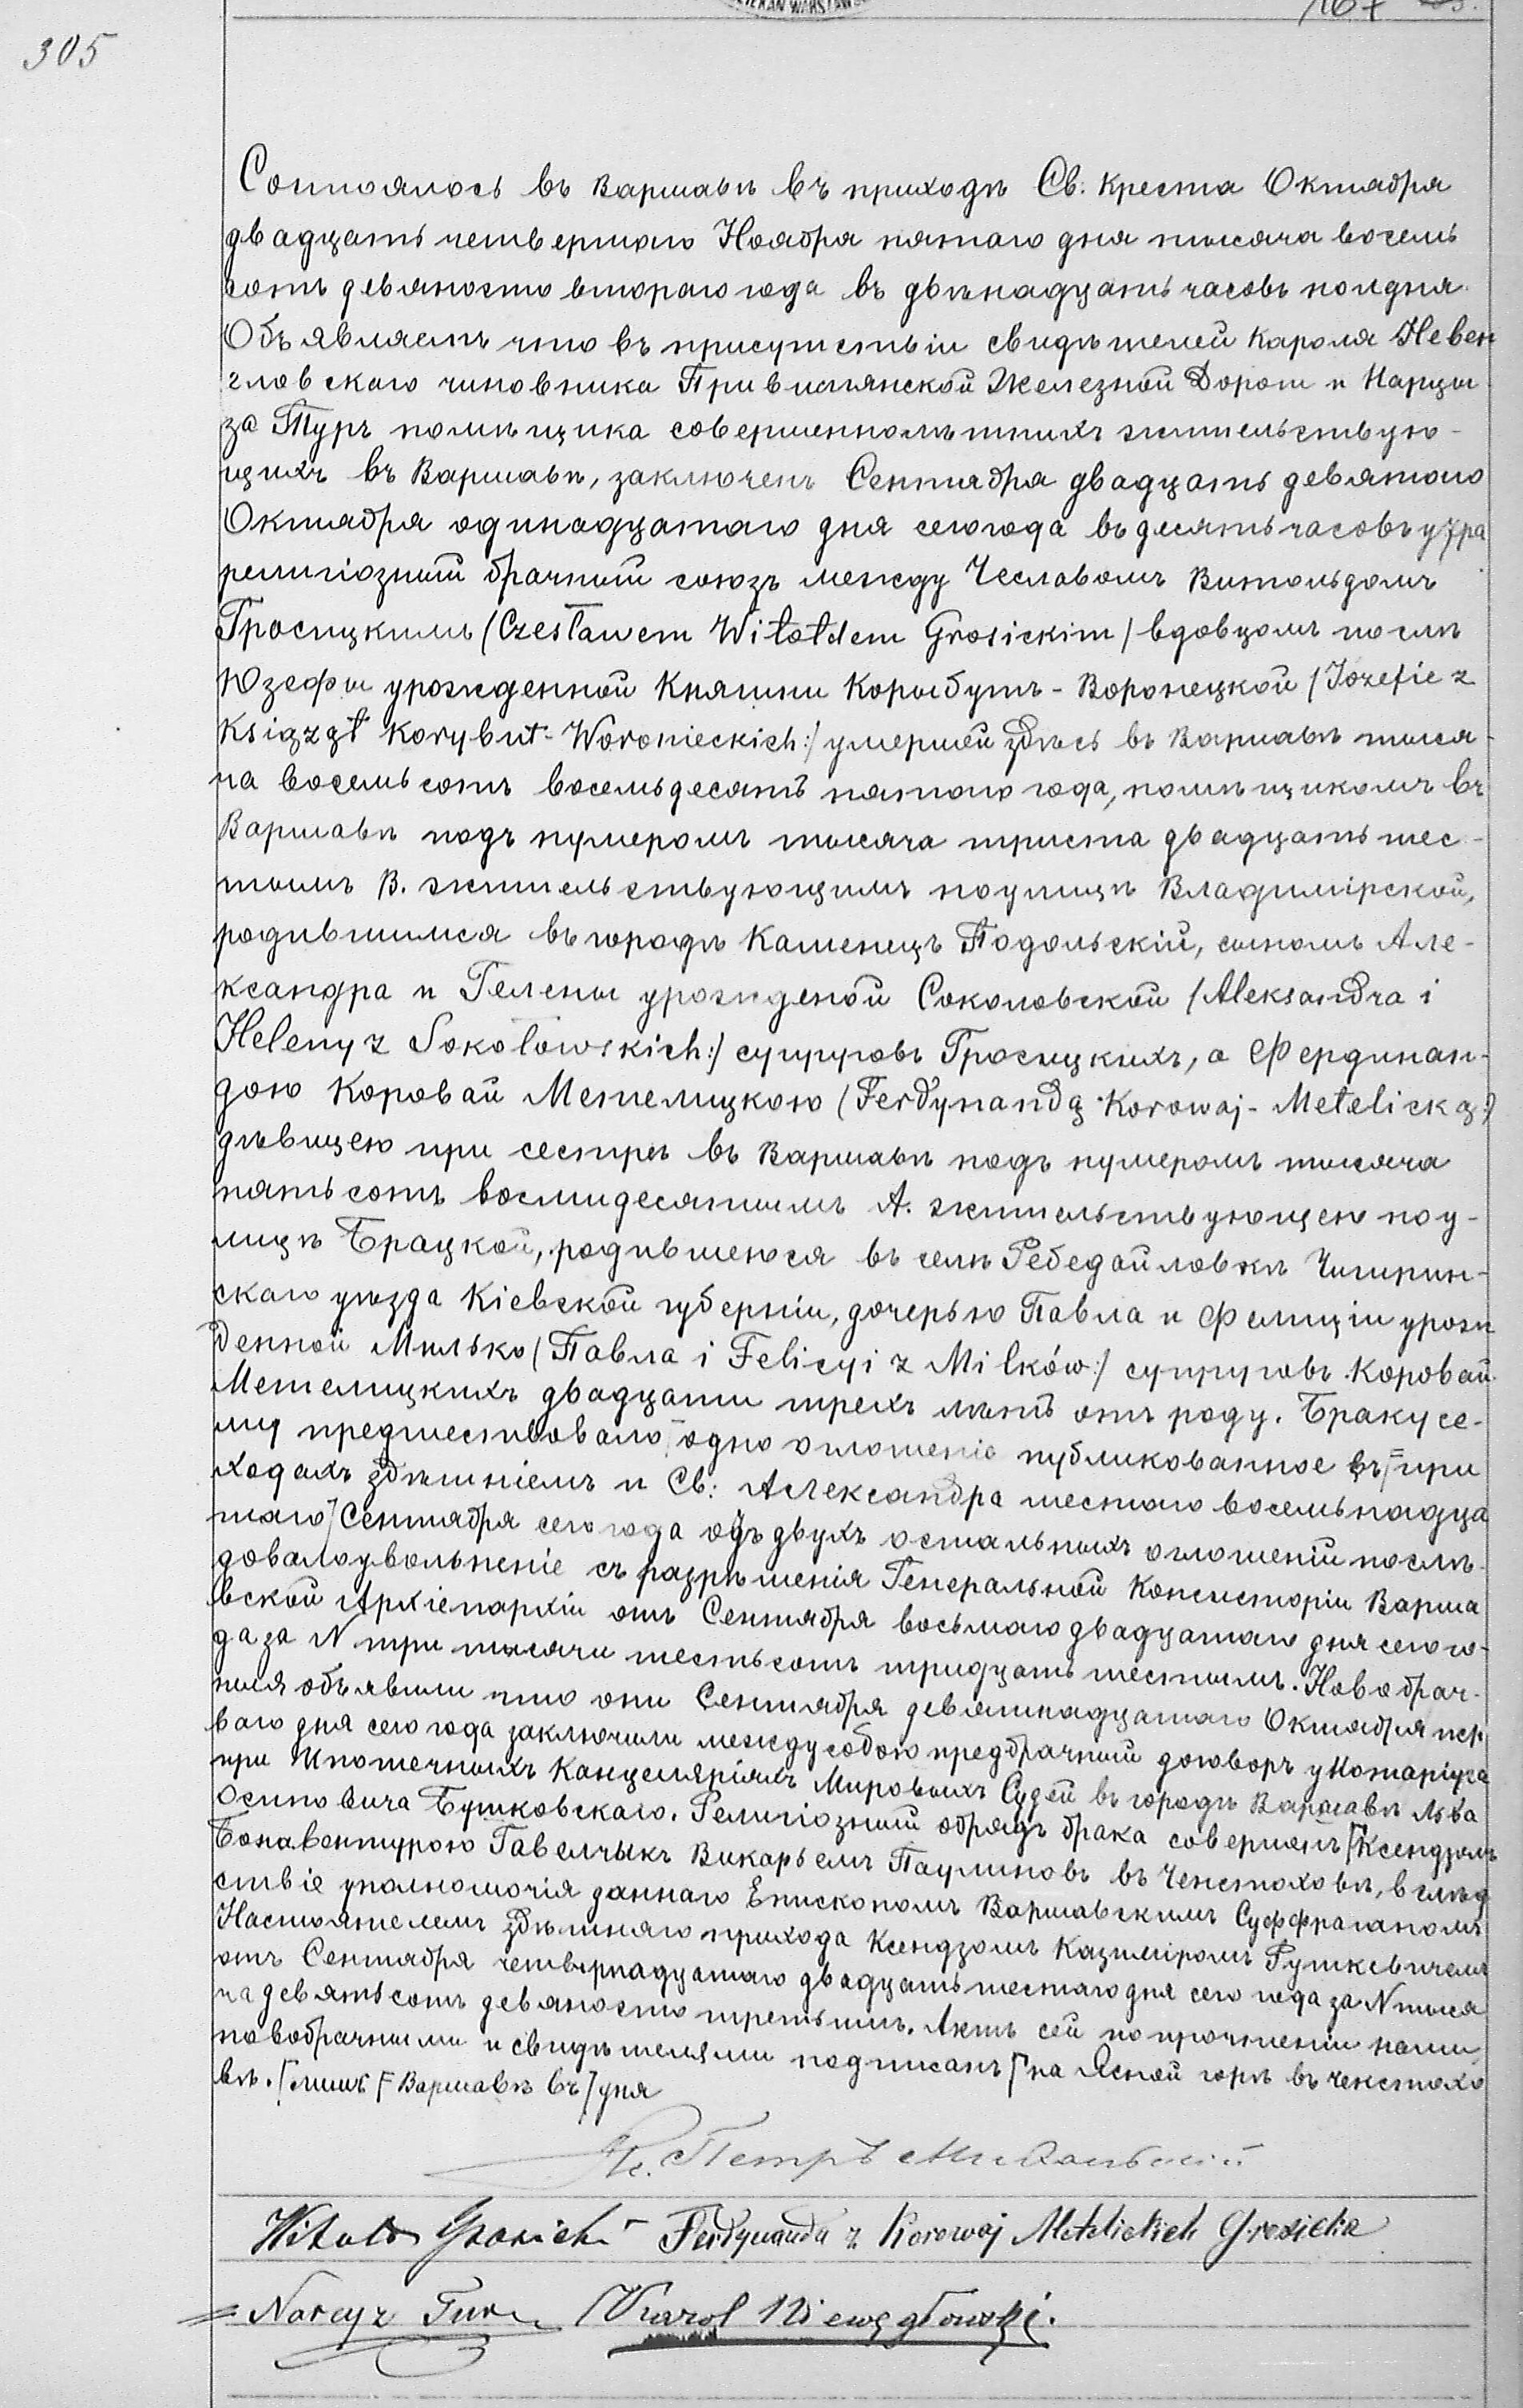 305
167
Состоялось въ Варшавѣ въ приходѣ Св. Креста Октября
двадцать четвертаго Ноября пятаго дня тысяча восемь
сотъ девяносто втораго года въ двѣнадцать часовъ полдня.
Объявляемъ что въ присутствіи свидѣтелей Кароля Невен
гловскаго чиновника Привислянской Железной Дороги и Нарци
за Туръ помѣщика совершеннолѣтнихъ жительствую-
щихъ въ Варшавѣ, заключенъ Сентября двадцать девятого
Октября одинадцатаго дня сего года въ десять часовъ утра
религіозный брачный союзъ между Чеславомъ Витольдомъ
Гросицкимъ (Czesławem Witołdem Grosickim) вдовцомъ послѣ
Юзефы урожденной Княжны Корыбутъ-Воронецкой (Józefie z
Książąt Korybut-Woronieckich:) умершей здѣсь въ Варшавѣ тыся-
ча восемьсотъ восемьдесятъ пятого года, помѣщикомъ въ
Варшавѣ подъ нумеромъ тысяча триста двадцать шес-
тымъ В. жительствующимъ по улицѣ Владимірской,
родившимся въ городѣ Каменецъ Подольскій, сыномъ Але-
ксандра и Гелены урожденой Соколовской (Aleksandra i
Heleny z Sokołowskich:) супруговъ Гросицкихъ, а Фердинан-
дою Коровай Метелицкою (Ferdynandą Korowaj-Metelicką:)
дѣвицею при сестрѣ въ Варшавѣ подъ нумеромъ тысяча
пятьсотъ восмидесятымъ А. жительствующею по у-
лицѣ Брацкой, родившеюся въ селѣ Ребедайловкѣ Чигирин-
скаго уѣзда Кіевской губерніи, дочерью Павла и Фелиціи урож
денной Милько (Павла i Felicyi z Milków:) супруговъ Коровай
Метелицкихъ двадцати трехъ лѣтъ отъ роду. Браку се-
му предшествовало одно оглошеніе публикованное въ при
ходахъ здѣшніемъ и Св: Александра шестаго восемьнадца
таго Сентября сего года отъ двухъ остальныхъ оглошеній послѣ-
довало увольненіе съ разрѣшенія Генеральной Консисторіи Варша
вской Архіепархіи отъ Сентября восьмаго двадцатаго дня сего го-
да за N три тысячи шестьсотъ тридцать шестымъ. Новобрач-
ныя объявили что они Сентября девятнадцатаго Октября пер
ваго дня сего года заключили между собою предбрачный договоръ у Нотаріуса
при Ипотечныхъ Канцеляріяхъ Мировыхъ Судей въ городѣ Варшавѣ Льва
Осиповича Бутковскаго. Религіозный обрядъ брака совершенъ Ксендзомъ
Бонавентурою Гавелчыкъ Викарьемъ Паулиновъ въ Ченстоховѣ, вслѣд
ствіе уполномочія даннаго Епископомъ Варшавскимъ Суффраганомъ
Настоятелемъ здѣшняго прихода Ксендзомъ Казиміромъ Рушкевичемъ
отъ Сентября четвернадцатаго двадцать шестаго дня сего года за N тыся
ча девятьсотъ девяносто третьимъ. Актъ сей по прочтеніи нами
новобрачными и свидѣтелями подписанъ на Ясной горѣ въ Ченстохо
вѣ. Варшавѣ въ дня
Кс. Петръ
Witold Grosicki Ferdynanda z Korowaj Metelickich Grosicka
Narcyz Tur Karol Niewęgłowski.